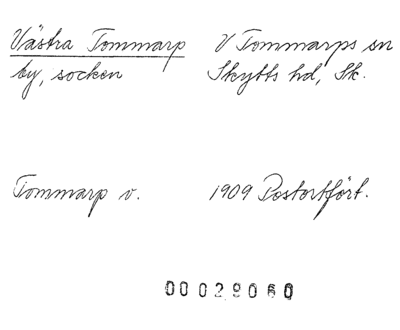 Västra Tommarp V Tommarps sn
by, socken Skytts hd, Sk.
Tommarp v. 1909 Postortfört.
00029060